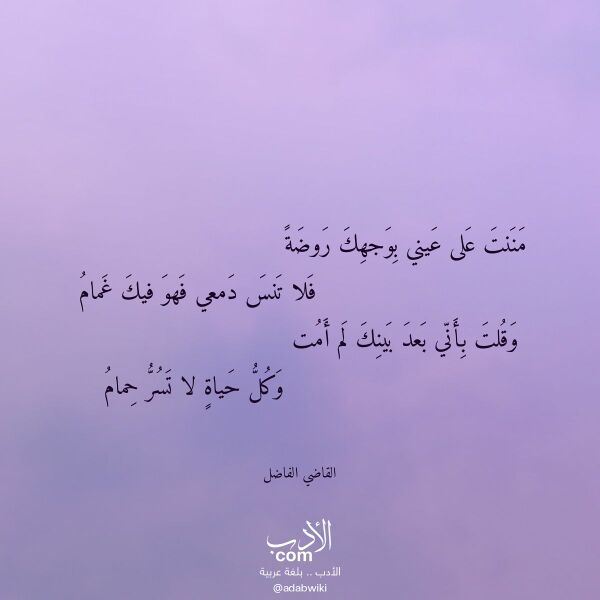 مَنَنتَ عَلى عَيني بِوَجهِكَ رَوضَةً
فَلا تَنسَ دَمعي فَهوَ فيكَ غَمامُ
وَقُلتَ بِأَنّي بَعدَ بَينِكَ لَم أَمُت
وَكُلُّ حَياةٍ لا تَسُرُّ حِمامُ
القاضي الفاضل
الأدب
.com
الأدب .. بلغة عربية
@adabwiki